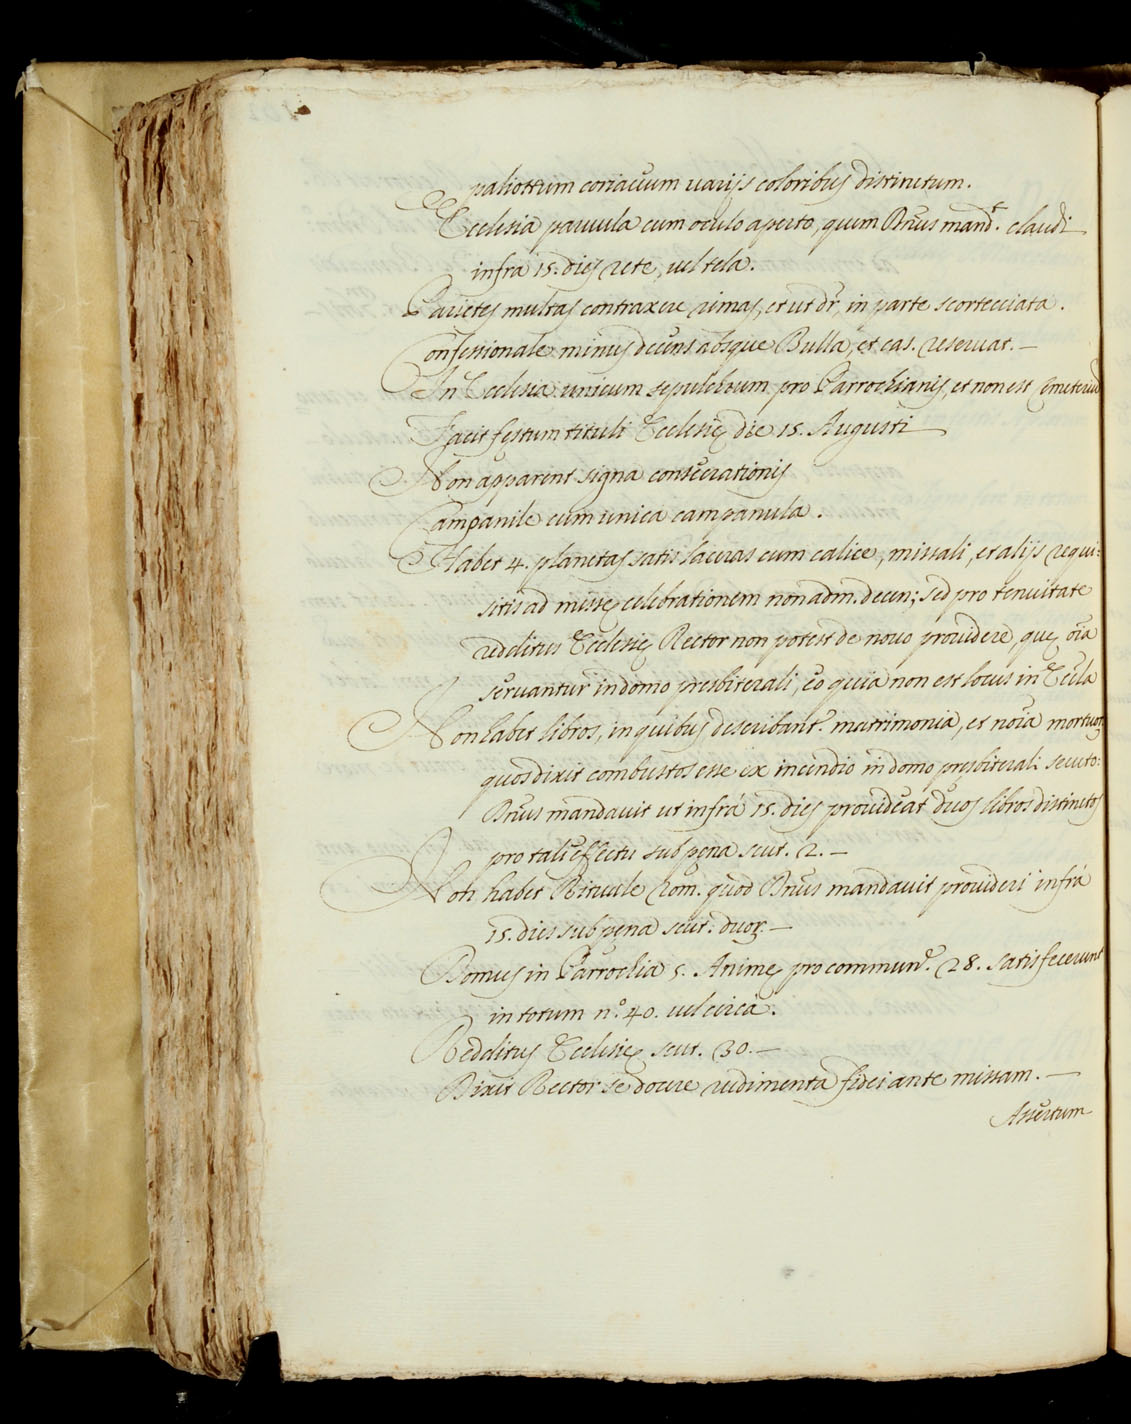 paliottum coriaceum varijs coloribus distinctum.
Ecclesia parvula cum oculo aperto, quem Dnus mand.t claudi
infra 15. dies rete, vel tela.
Parietes multas contraxere rimas, et ut dr, in parte scortecciata.
Confessionale minus decens absque Bulla, et cas. reservat.
In Ecclesia unicum sepulchrum pro Parrochianis, et non est Cemeteriũ
Facit festum tituli Ecclesię die 15. Augusti
Non apparent signa consecrationis
Campanile cum unica campanula.
Habet 4. planetas satis laceras cum calice, missali, et alijs requi:
sitis ad missę celebrationem non adm. decen; sed pro tenuitate
redditus Ecclesię Rector non potest de novo providere, quę oĩa
servantur in domo presbiterali, eo quia non est locus in Eccla
Non habet libros, in quibus describant.r matrimonia, et noĩa mortuoꝝ
quos dixit combustos esse ex incendio in domo presbiterali secuto:
Dnus mandavit ut infra 15. dies provideat duos libros distinctos
pro tali effectu sub pena scut. 2.
Non habet Rituale Rom. quod Dnus mandavit provideri infra
15. dies sub pęna scut. duoꝝ.
Domus in Parrochia 5. Animę pro commun.e 28. satisfecerunt
in totum n.o 40. vel circa.
Redditus Ecclesię scut. 30.
Dixit Rector se docere rudimenta fidei ante missam.
Assertum